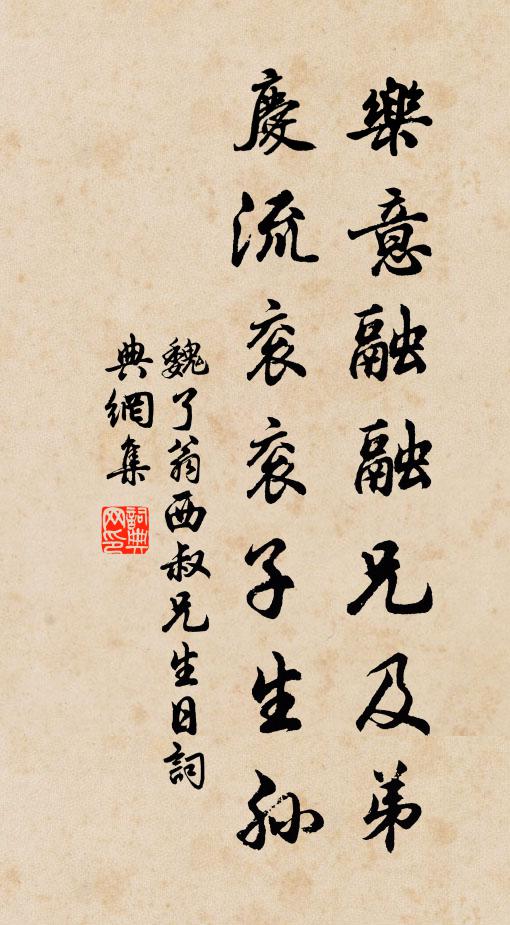 樂意融融兄及弟
慶流衮衮子生孫
魏了翁西叔兄生日詞
典網集
詞典网印